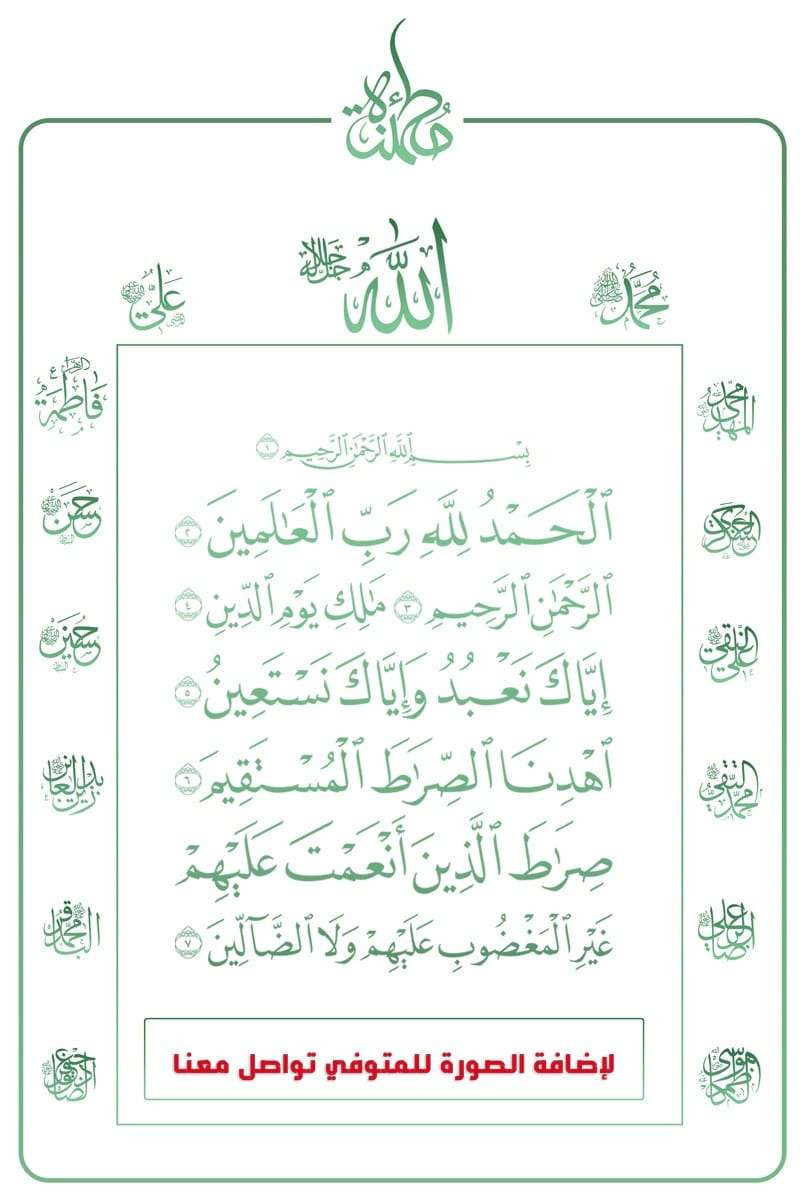 مطمئنة
الله جل جلاله
محمد
علي
فاطمة الزهراء
حسن
حسين
زين العابدين
محمد الباقر
جعفر الصادق
موسى الكاظم
علي الرضا
محمد التقي
علي النقي
العسكري
محمد المهدي
بِسْمِ ٱللَّهِ ٱلرَّحْمَٰنِ ٱلرَّحِيمِ ١
ٱلْحَمْدُ لِلَّهِ رَبِّ ٱلْعَٰلَمِينَ ٢
ٱلرَّحْمَٰنِ ٱلرَّحِيمِ ٣ مَٰلِكِ يَوْمِ ٱلدِّينِ ٤
إِيَّاكَ نَعْبُدُ وَإِيَّاكَ نَسْتَعِينُ ٥
ٱهْدِنَا ٱلصِّرَٰطَ ٱلْمُسْتَقِيمَ ٦
صِرَٰطَ ٱلَّذِينَ أَنْعَمْتَ عَلَيْهِمْ
غَيْرِ ٱلْمَغْضُوبِ عَلَيْهِمْ وَلَا ٱلضَّآلِّينَ ٧
لإضافة الصورة للمتوفي تواصل معنا